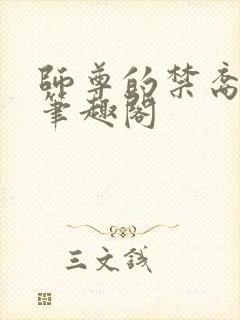 師尊的禁
筆趣閣
三文錢